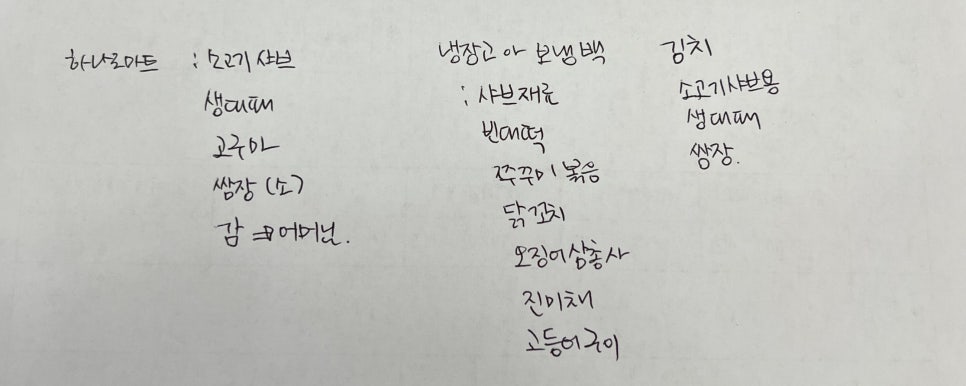 하나로마트 : 소고기 샤브
생대패
고구마
쌈장 (소)
감 ⇒ 어머님.
냉장고 아 보냉백
: 샤브재료
빈대떡
쭈꾸미 볶음
닭꼬치
오징어삼총사
진미채
고등어구이
김치
소고기샤브용
생대패
쌈장.